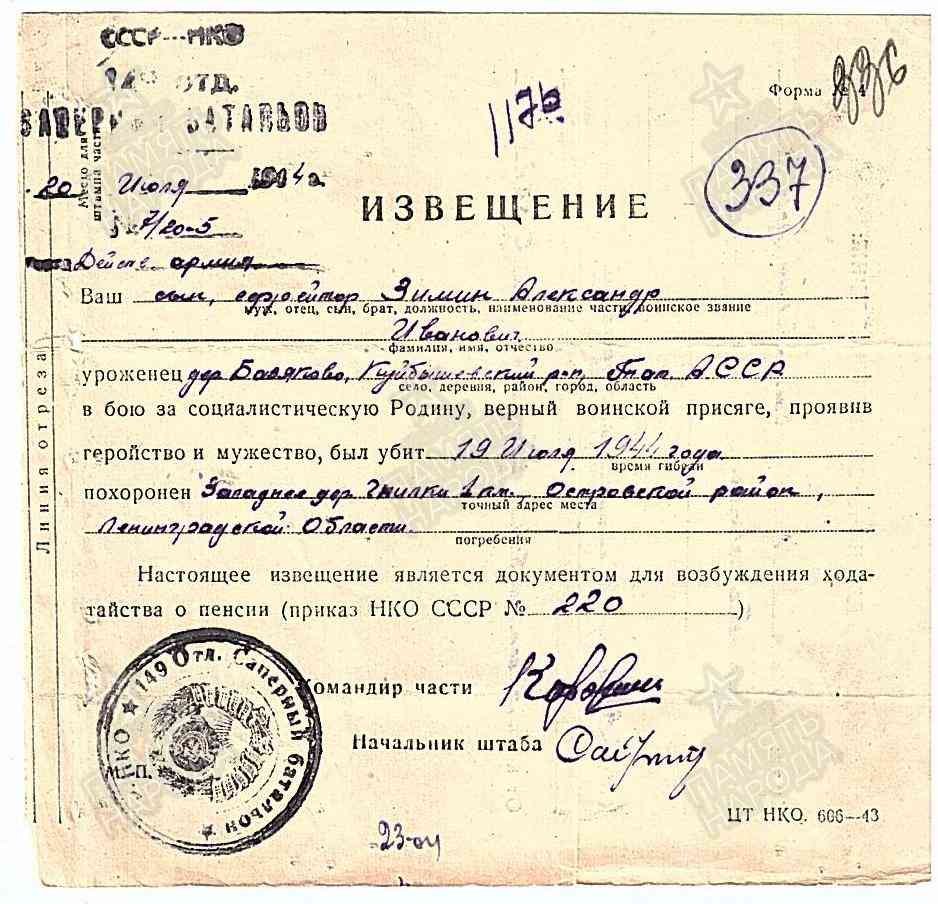 СССР—НКО
149 ОТД.
САПЕРНЫЙ БАТАЛЬОН
Место для штампа части
20 Июля 1944 г.
№ 7/20-5
Действ. армия
1176
Форма № 4
336
337
ИЗВЕЩЕНИЕ
Ваш сын, ефрейтор Зимин Александр
муж, отец, сын, брат, должность, наименование части, воинское звание
Иванович
фамилия, имя, отчество
уроженец дер Базяково, Куйбышевский р-н, Тат. АССР
село, деревня, район, город, область
в бою за социалистическую Родину, верный воинской присяге, проявив
геройство и мужество, был убит 19 Июля 1944 года
время гибели
похоронен Западнее дер Гнилки 1 км., Островской район,
точный адрес места
Ленинградской Области.
погребения
Настоящее извещение является документом для возбуждения хода-
тайства о пенсии (приказ НКО СССР № 220 )
Командир части
Начальник штаба
НКО ★ 149 Отд. Саперный батальон ★
М. П.
ЦТ НКО. 606—43
Линия отреза
ПАМЯТЬ НАРОДА